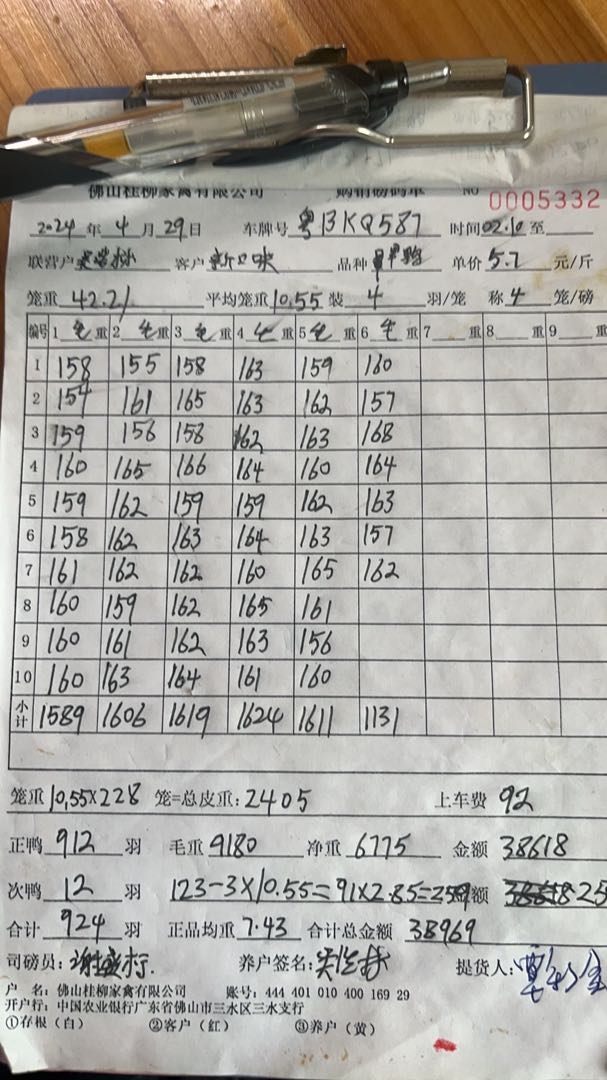 佛山桂柳家禽有限公司 购销磅码单 NO 0005332
2024 年 4 月 29 日 车牌号 粤BKQ587 时间 02.10 至
联营户 客户 新口味 品种 单价 5.7 元/斤
笼重 42.21 平均笼重 10.55 装 4 羽/笼 称 4 笼/磅
编号 1 毛 重 2 毛 重 3 毛 重 4 毛 重 5 毛 重 6 毛 重 7 重 8 重 9 重
1 158 155 158 163 159 160
2 154 161 165 163 162 157
3 159 156 158 162 163 168
4 160 165 166 164 160 164
5 159 162 159 159 162 163
6 158 162 163 164 163 157
7 161 162 162 160 165 162
8 160 159 162 165 161
9 160 161 162 163 156
10 160 163 164 161 160
小计 1589 1606 1619 1624 1611 1131
笼重 10.55×228 笼=总皮重: 2405 上车费 92
正鸭 912 羽 毛重 9180 净重 6775 金额 38618
次鸭 12 羽 123-3×10.55=91×2.85=259 金额
合计 924 羽 正品均重 7.43 合计总金额 38969
司磅员: 养户签名: 提货人:
户 名: 佛山桂柳家禽有限公司 账号: 444 401 010 400 169 29
开户行: 中国农业银行广东省佛山市三水区三水支行
①存根(白) ②客户(红) ③养户(黄)